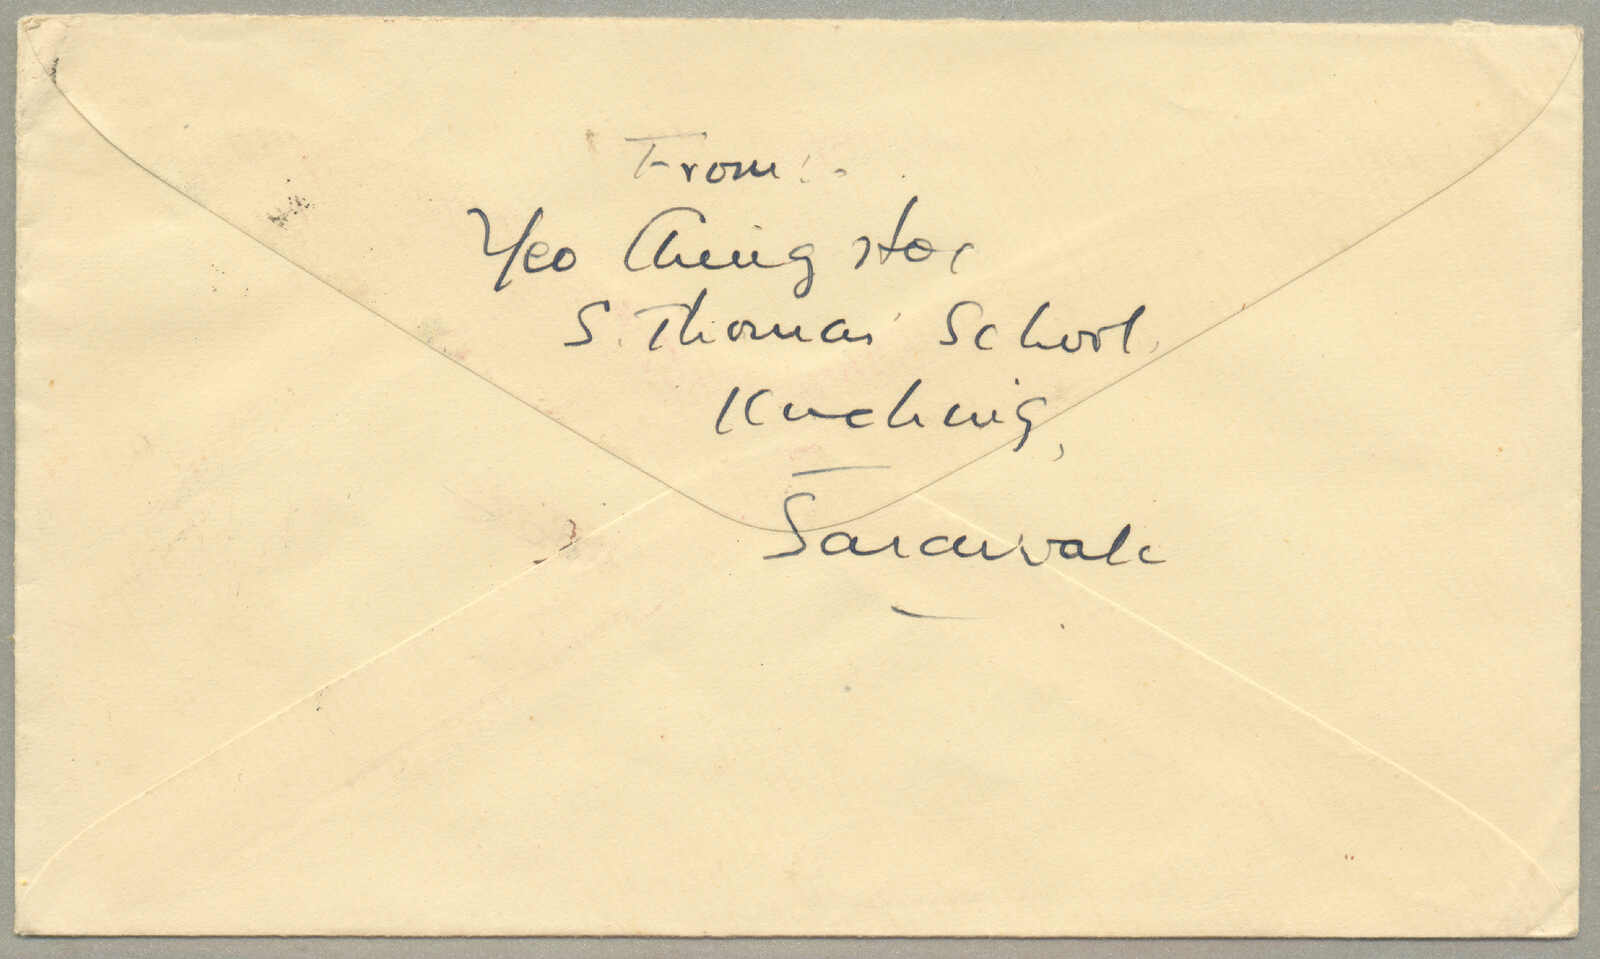 From:-
Yeo Cheng Hoe
S. Thomas' School,
Kuching,
Sarawak